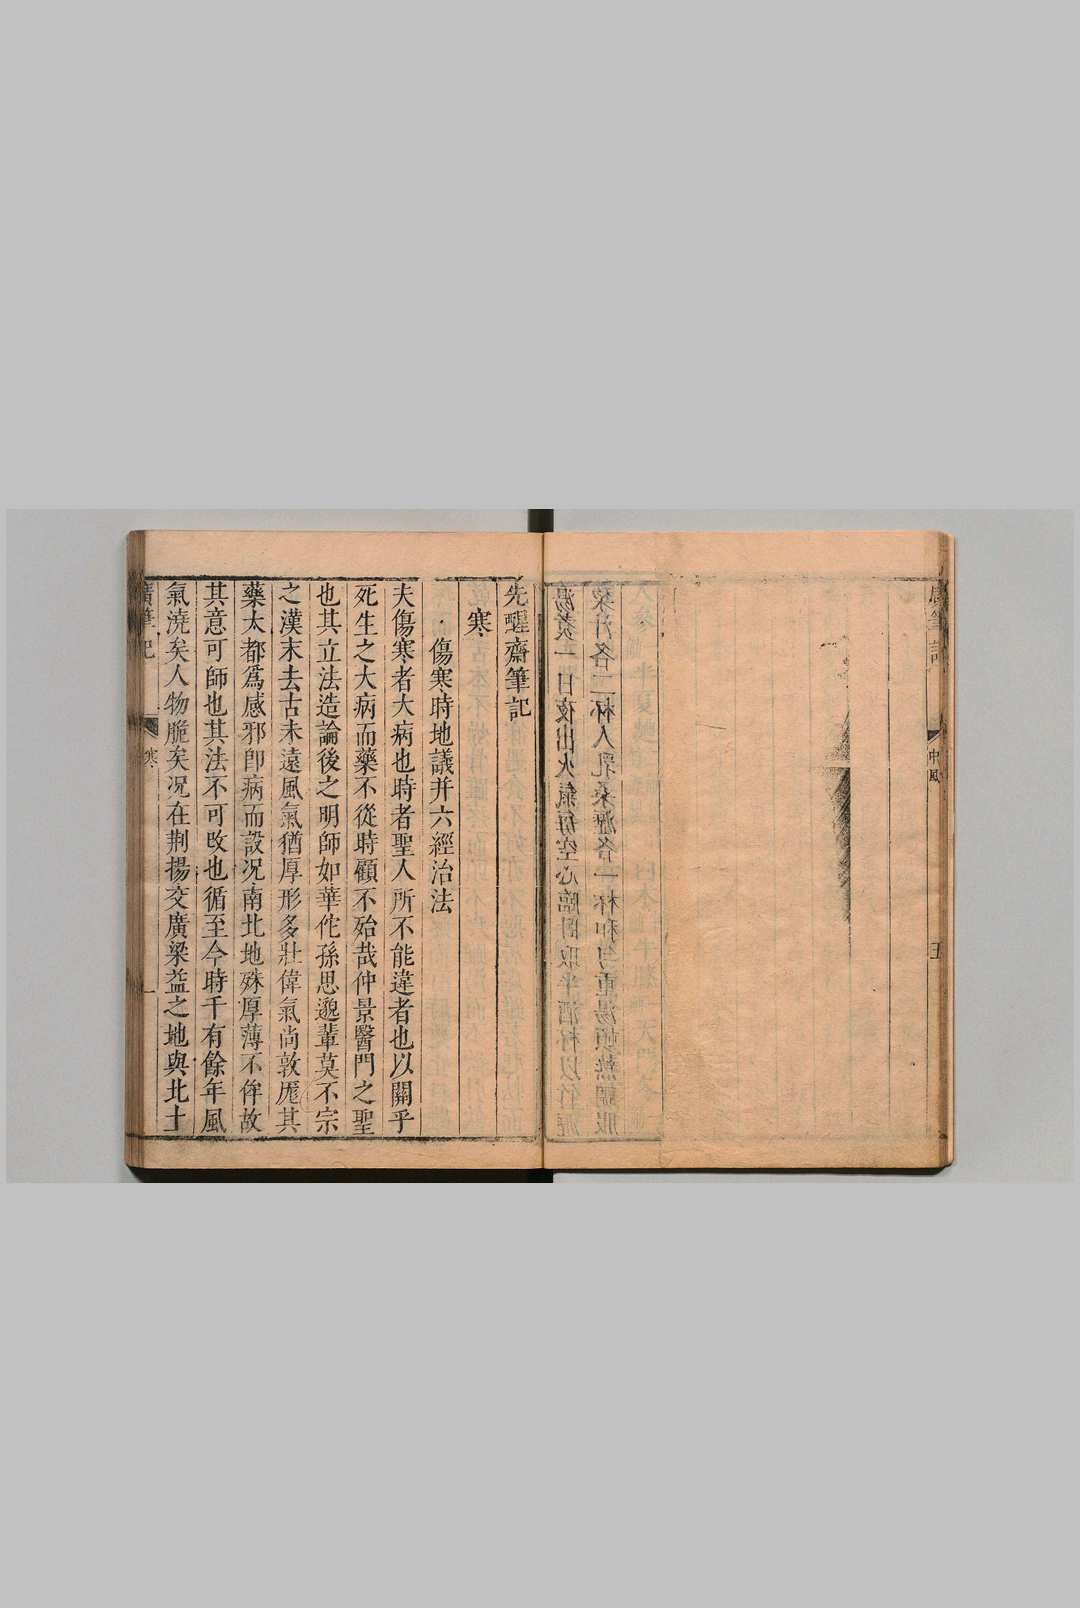 廣筆記 中風 五
先醒齋筆記
寒
傷寒時地議并六經治法
夫傷寒者大病也時者聖人所不能違者也以關乎
死生之大病而藥不從時顧不殆哉仲景醫門之聖
也其立法造論後之明師如華佗孫思邈輩莫不宗
之漢末去古未遠風氣猶厚形多壯偉氣尚敦厖其
藥大都爲感邪卽病而設况南北地殊厚薄不侔故
其意可師也其法不可改也循至今時千有餘年風
氣澆矣人物脆矣况在荆揚交廣梁益之地與北土
廣筆記 寒 一